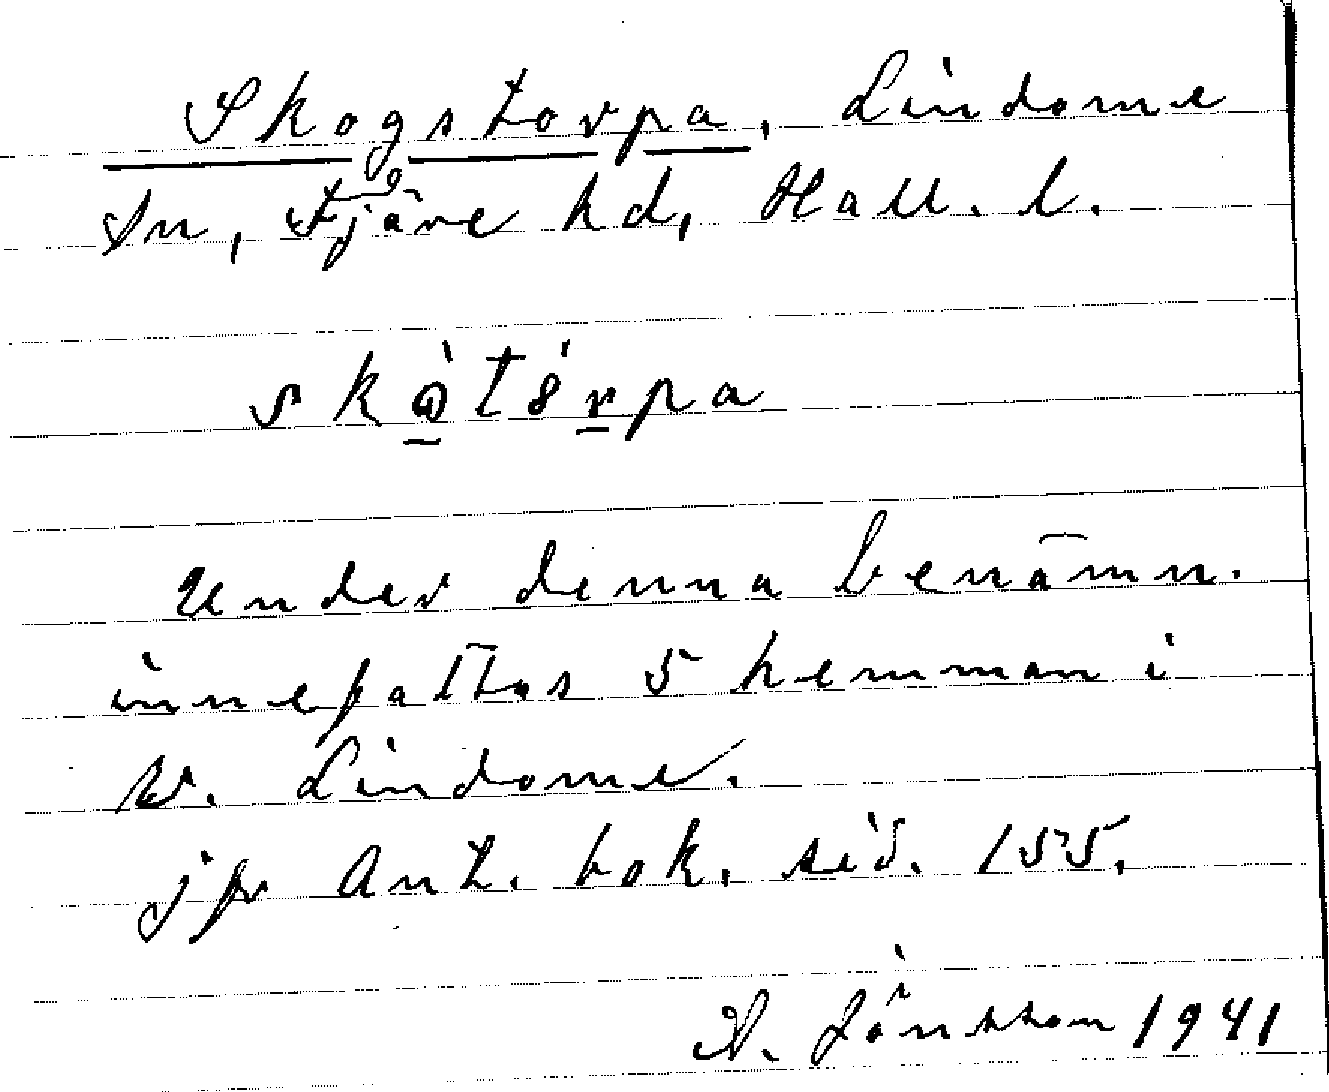 Skogstorpa, Lindome
Sn, Fjäre hd, Hall. l.
skọ̀tórpa
Under denna benämn.
innefattas 5 hemman i
V. Lindome.
jfr Ant. bok. sid. 155.
A. Jönsson 1941